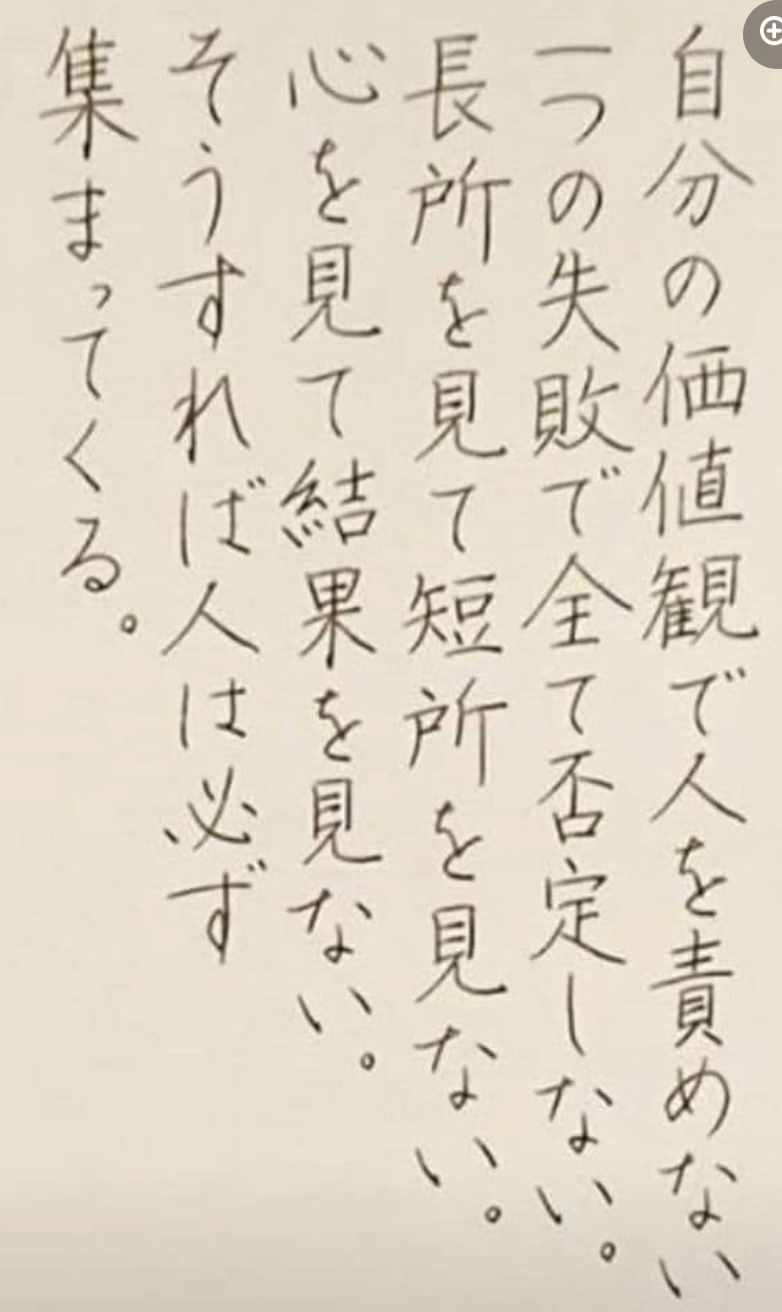 自分の価値観で人を責めない
一つの失敗で全て否定しない。
長所を見て短所を見ない。
心を見て結果を見ない。
そうすれば人は必ず
集まってくる。